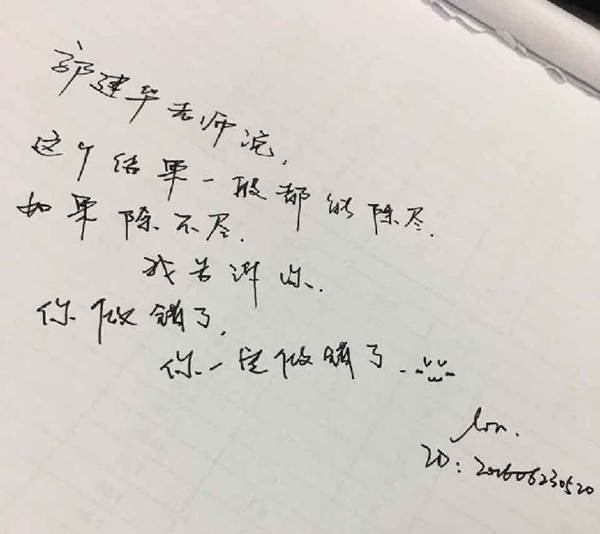 郭建华老师说,
这个结果一般都能除尽.
如果除不尽.
我告诉你.
你做错了,
你一定做错了.
lon.
ID: 201606230520